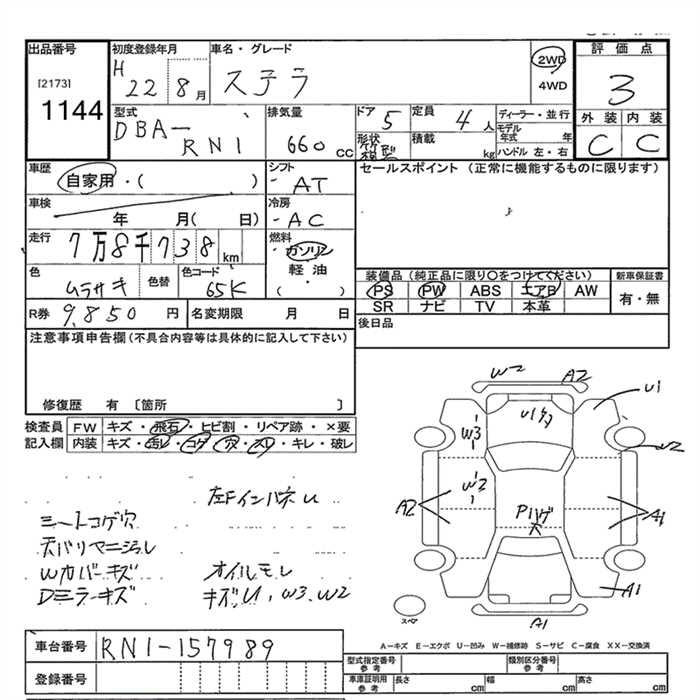 出品番号
[2173]
1144
初度登録年月
H 22 8 月
車名・グレード
ステラ
2WD
4WD
評価点
3
外装 内装
C C
型式
DBA-
RN1
排気量
660 CC
ドア 5
定員 4 人
形状
積載 kg
ディーラー・並行
モデル年式 年
ハンドル 左・右
車歴
自家用・( )
シフト
AT
セールスポイント (正常に機能するものに限ります)
車検
年 月( 日)
冷房
AC
走行
7万8千738 km
燃料
ガソリン
軽油
( )
色
ムラサキ
色替
色コード
65K
装備品 (純正品に限り○をつけてください)
新車保証書
PS PW ABS エアB AW
有・無
SR ナビ TV 本革
R券 9,850 円
名変期限 月 日
後日品
注意事項申告欄 (不具合内容等は具体的に記入して下さい)
修復歴 有 〔箇所 〕
検査員
記入欄
FW キズ・飛石・ヒビ割・リペア跡・×要
内装 キズ・汚レ・コゲ・穴・スレ・キレ・破レ
W2
A2
U1
U1タタ
W3
W2
W2
A2
Pハゲ
大
A1
A1
A1
スペア
左Fインパネ U
シートコゲ穴
天バリマニジュレ
Wカバーキズ
オイルモレ
Dミラーキズ
キズU、W3、W2
A-キズ E-エクボ U-凹み W-補修跡 S-サビ C-腐食 XX-交換済
車台番号
RN1-157989
登録番号
型式指定番号
参考
類別区分番号
参考
車庫証明用
参考
長さ cm
幅 cm
高さ cm